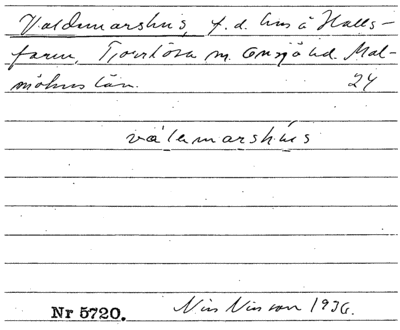 Valdemarshus, f.d. hus å Halls-
farm, Torrlösa sn. Onsjö hd. Mal-
möhus län. 24
válemarshus
Nr 5720. Nils Nilsson 1936.